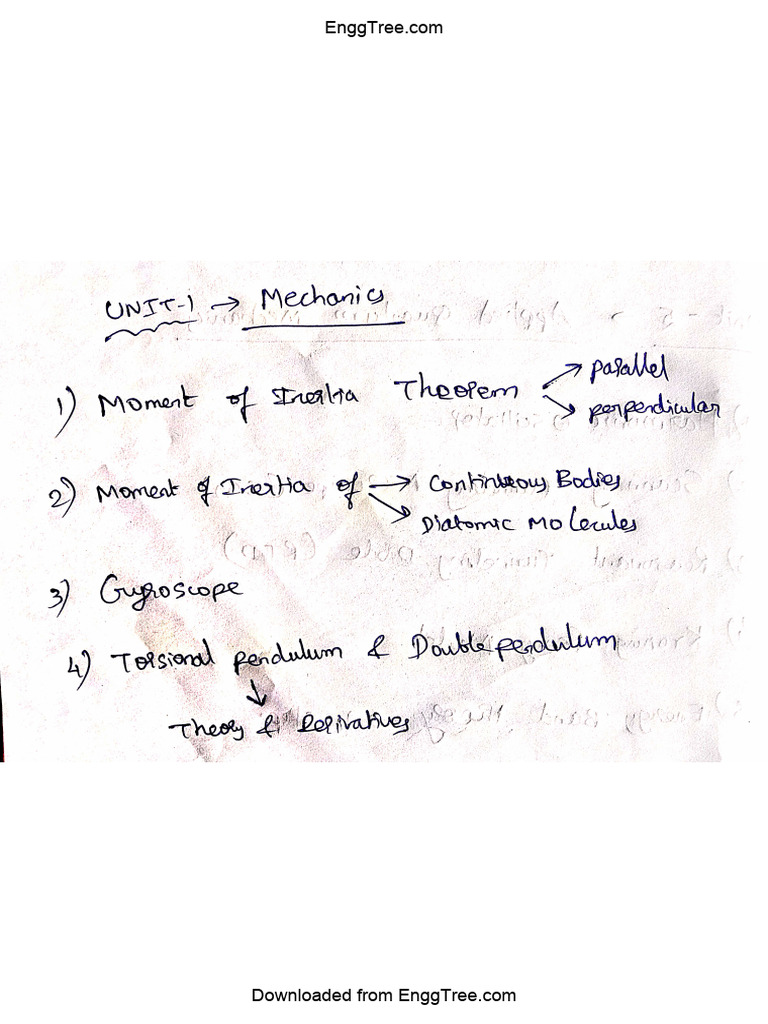 EnggTree.com
UNIT-1 → Mechanics
1) Moment of Inertia Theorem → parallel
→ perpendicular
2) Moment of Inertia of → Continuous Bodies
→ Diatomic Molecules
3) Gyroscope
4) Torsional pendulum & Double pendulum
↓
Theory & Derivatives
Downloaded from EnggTree.com